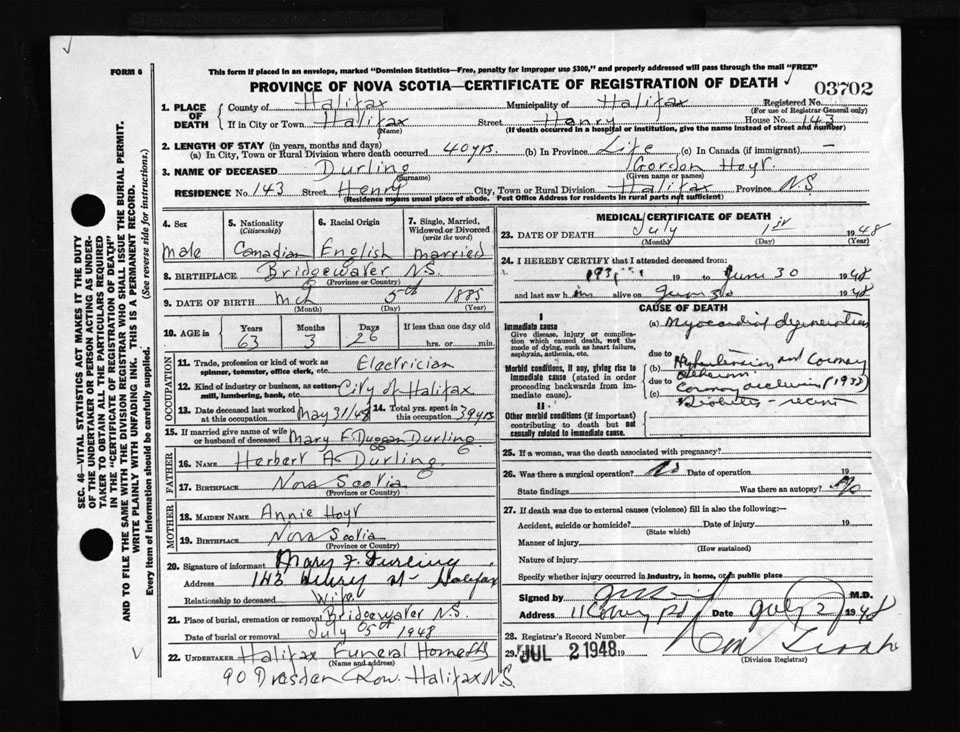 FORM 6
This form if placed in an envelope, marked "Dominion Statistics—Free, penalty for improper use $300," and properly addressed will pass through the mail "FREE"
PROVINCE OF NOVA SCOTIA—CERTIFICATE OF REGISTRATION OF DEATH
03702
SEC. 46—VITAL STATISTICS ACT MAKES IT THE DUTY
OF THE UNDERTAKER OR PERSON ACTING AS UNDER-
TAKER TO OBTAIN ALL THE PARTICULARS REQUIRED
IN THE "CERTIFICATE OF REGISTRATION OF DEATH"
AND TO FILE THE SAME WITH THE DIVISION REGISTRAR WHO SHALL ISSUE THE BURIAL PERMIT.
WRITE PLAINLY WITH UNFADING INK. THIS IS A PERMANENT RECORD.
Every item of information should be carefully supplied. (See reverse side for instructions.)
1. PLACE OF DEATH
County of Halifax Municipality of Halifax Registered No.
(For use of Registrar General only)
If in City or Town Halifax Street Henry House No. 143
(Name) (If death occurred in a hospital or institution, give the name instead of street and number)
2. LENGTH OF STAY (in years, months and days)
(a) In City, Town or Rural Division where death occurred 40 yrs. (b) In Province Life (c) In Canada (if immigrant) —
3. NAME OF DECEASED Durling Gordon Hoyt.
(Surname) (Given name or names)
RESIDENCE No. 143 Street Henry City, Town or Rural Division Halifax Province N.S
(Residence means usual place of abode. Post Office Address for residents in rural parts not sufficient)
4. Sex
male
5. Nationality
(Citizenship)
Canadian
6. Racial Origin
English
7. Single, Married, Widowed or Divorced
(write the word)
married
8. BIRTHPLACE Bridgewater N.S.
(Province or Country)
9. DATE OF BIRTH Mch 5th 1885
(Month) (Day) (Year)
10. AGE in Years Months Days If less than one day old
63 3 26 hrs. or min.
OCCUPATION
11. Trade, profession or kind of work as spinner, teamster, office clerk, etc. Electrician
12. Kind of industry or business, as cotton mill, lumbering, bank, etc. City of Halifax
13. Date deceased last worked at this occupation May 31/48 14. Total yrs. spent in this occupation 39 yrs
15. If married give name of wife or husband of deceased Mary F. Duggan Durling
FATHER
16. NAME Herbert A Durling
17. BIRTHPLACE Nova Scotia
(Province or Country)
MOTHER
18. MAIDEN NAME Annie Hoyt
19. BIRTHPLACE Nova Scotia
(Province or Country)
20. Signature of informant Mary F. Durling
Address 143 Henry St - Halifax
Relationship to deceased Wife
21. Place of burial, cremation or removal Bridgewater N.S.
Date of burial or removal July 5th 1948
22. UNDERTAKER Halifax Funeral Home
(Name and address)
90 Dresden Row. Halifax N.S.
MEDICAL CERTIFICATE OF DEATH
23. DATE OF DEATH July 1st 1948
(Month) (Day) (Year)
24. I HEREBY CERTIFY that I attended deceased from:
19 to June 30 1948
and last saw him alive on June 30 1948
CAUSE OF DEATH
I
Immediate cause
Give disease, injury or complication which caused death, not the mode of dying, such as heart failure, asphyxia, asthenia, etc.
(a) Myocardial degeneration
due to
Morbid conditions, if any, giving rise to immediate cause (stated in order proceeding backwards from immediate cause).
(b) Hypertension and Coronary
due to
(c) Coronary
Diabetes - recent
II
Other morbid conditions (if important) contributing to death but not causally related to immediate cause.
25. If a woman, was the death associated with pregnancy?
26. Was there a surgical operation? No Date of operation 19
State findings Was there an autopsy? No
27. If death was due to external causes (violence) fill in also the following:—
Accident, suicide or homicide? Date of injury 19
(State which)
Manner of injury
(How sustained)
Nature of injury
Specify whether injury occurred in industry, in home, or in public place
Signed by M.D.
Address Date July 2 1948
28. Registrar's Record Number
29. JUL 2 1948 19
(Division Registrar)